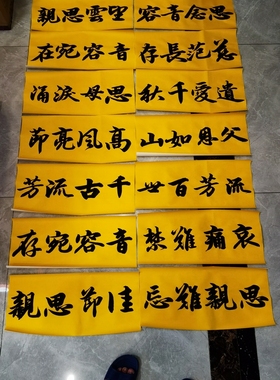 思念音容
望雲思親
慈范長存
音容宛在
遺愛千秋
思母淚涌
父恩如山
高風亮節
流芳百世
千古流芳
哀痛難禁
音容宛存
思親難忘
佳節思親